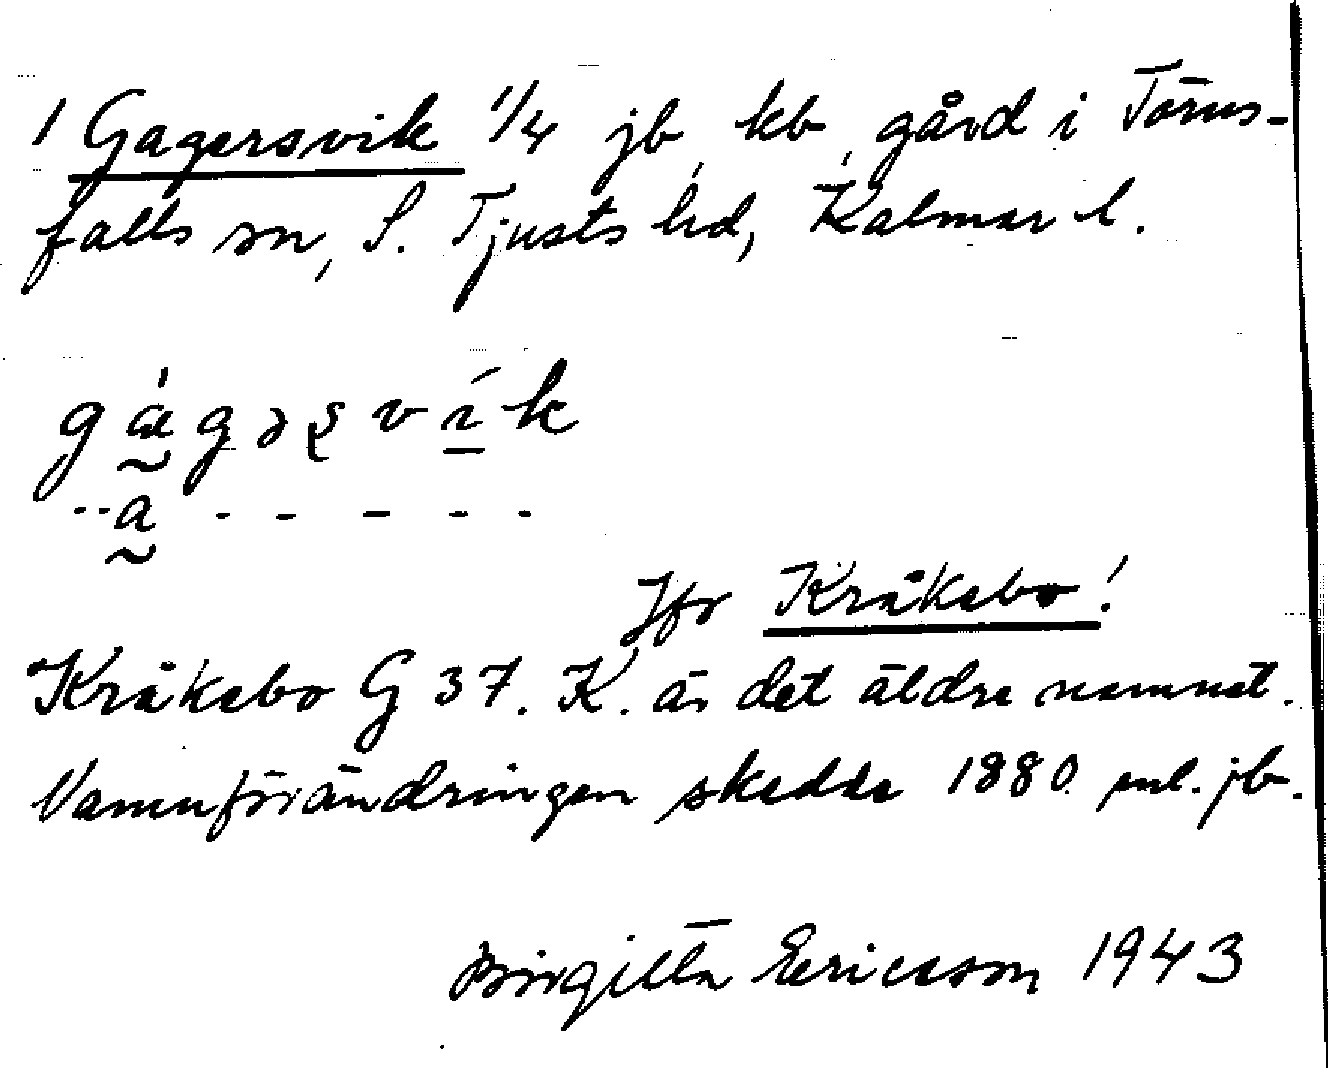 1 Gagersvik 1/4 jb, kb, gård i Törns-
falls sn, S. Tjusts hd, Kalmar l.
Jfr Kråkebo!
Kråkebo G 37. K. är det äldre namnet.
Namnförändringen skedde 1880 enl. jb.
Birgitta Ericsson 1943